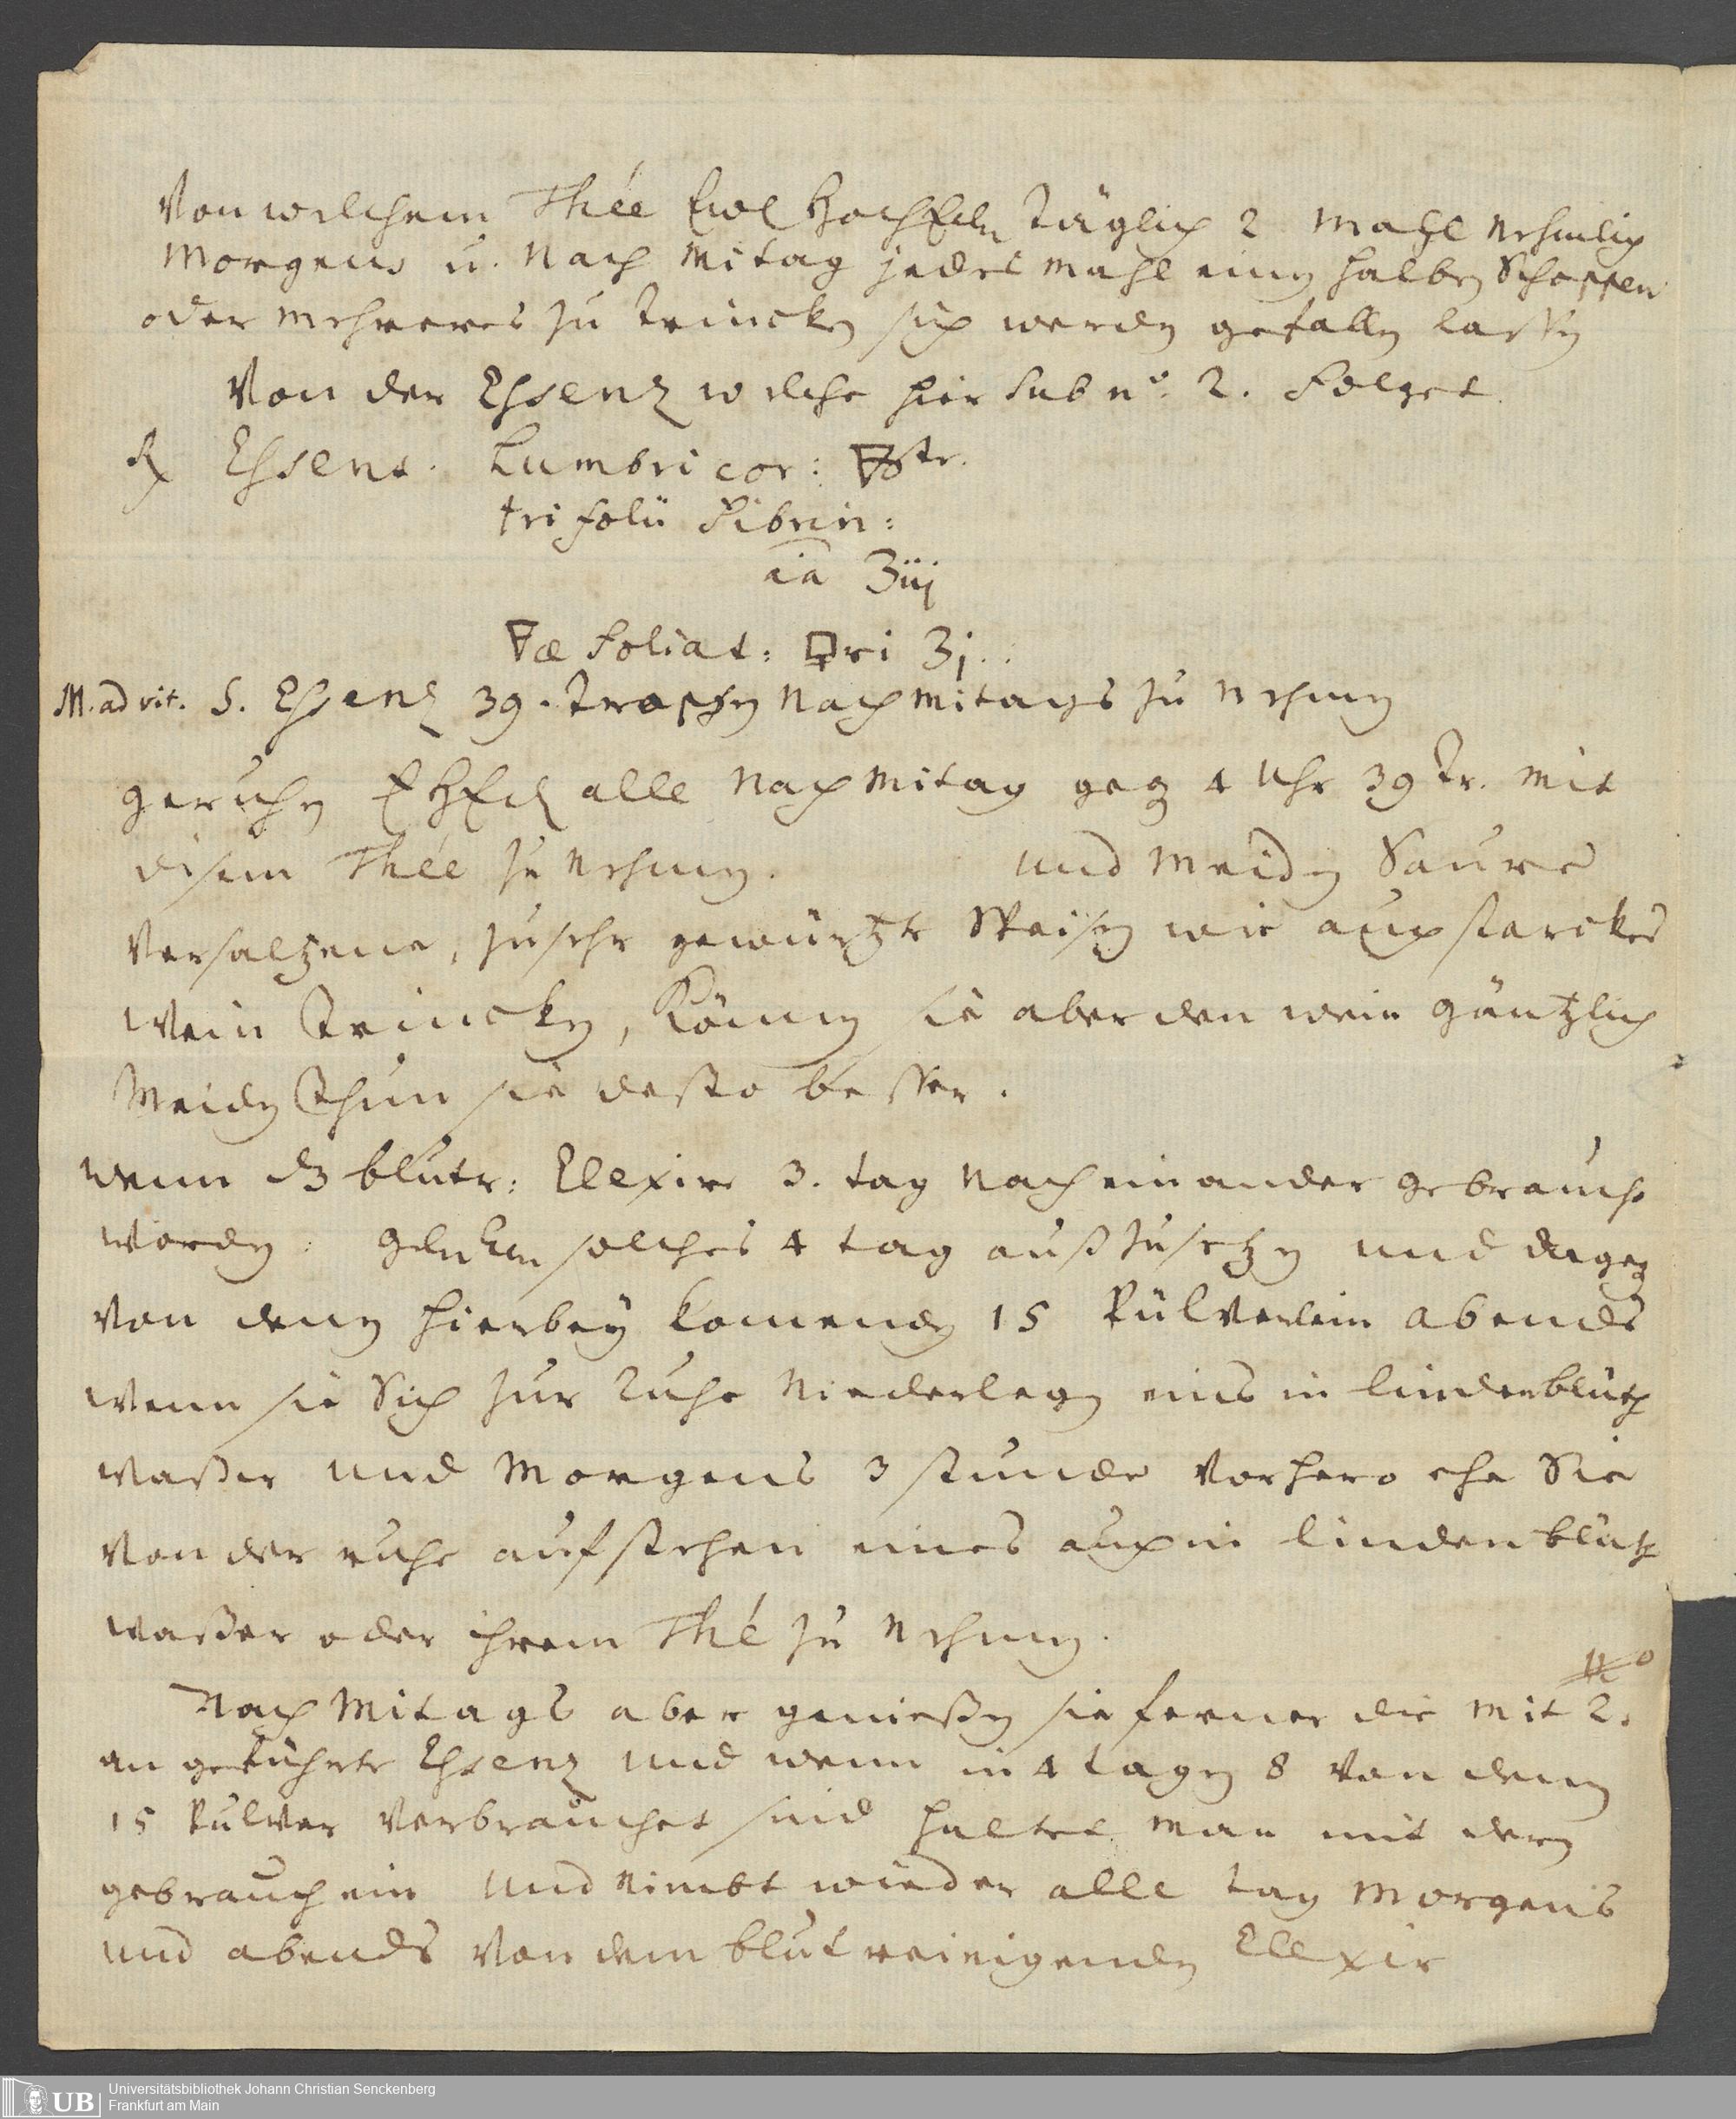 Von welchem Thée Ewl HochEdln täglich 2 mahl nehmlich
Morgens u. Nach Mitag jedes mahl einen halben Schoppen
oder mehreres zu trincken sich werden gefallen lassen
Von der Essenz welche hier sub no. 2. Folget.
Rx Essent. Lumbricor: ▽str.
trifolii Fibrin:
aa ʒiij
▽æ Foliat: ri ʒj..
M. ad vit. S. Essenz 39. tropfen Nachmitags zu nehmen
geruhen alle Nachmitag geg 4 Uhr 39 Tr. mit
disem Thée zu nehmen. und meiden Saures
Versaltzene, zu sehr gewürtzte Speisen wie auch starckes
Wein Trincken, Können sie aber den wein gäntzlich
Meiden Thun sie desto besser.
wenn dz blutr: Elexire 3. tag nach einander gebraucht
worden: solches 4 tag außzusetzen und dageg
von denen hierbeÿ komenden 15 Pülverlein abends
wenn sie Sich zur Ruhe niederlegen eins in lindenblüth
waßer und Morgens 3 stunde vorhero ehe Sie
von der ruhe aufstehen eines auch in lindenblüth
waßer oder ihrem Thé zu nehmen.
no
Nach Mitags aber genießen sie ferner die mit 2.
angeführte Essenz und wenn in 4 tagen 8 von denen
15 Pulver verbrauchet sind haltet man mit dem
gebrauch ein und nimbt wieder alle tag Morgens
und abends von dem blutreinigenden Elexir
Universitätsbibliothek Johann Christian Senckenberg
UB Frankfurt am Main